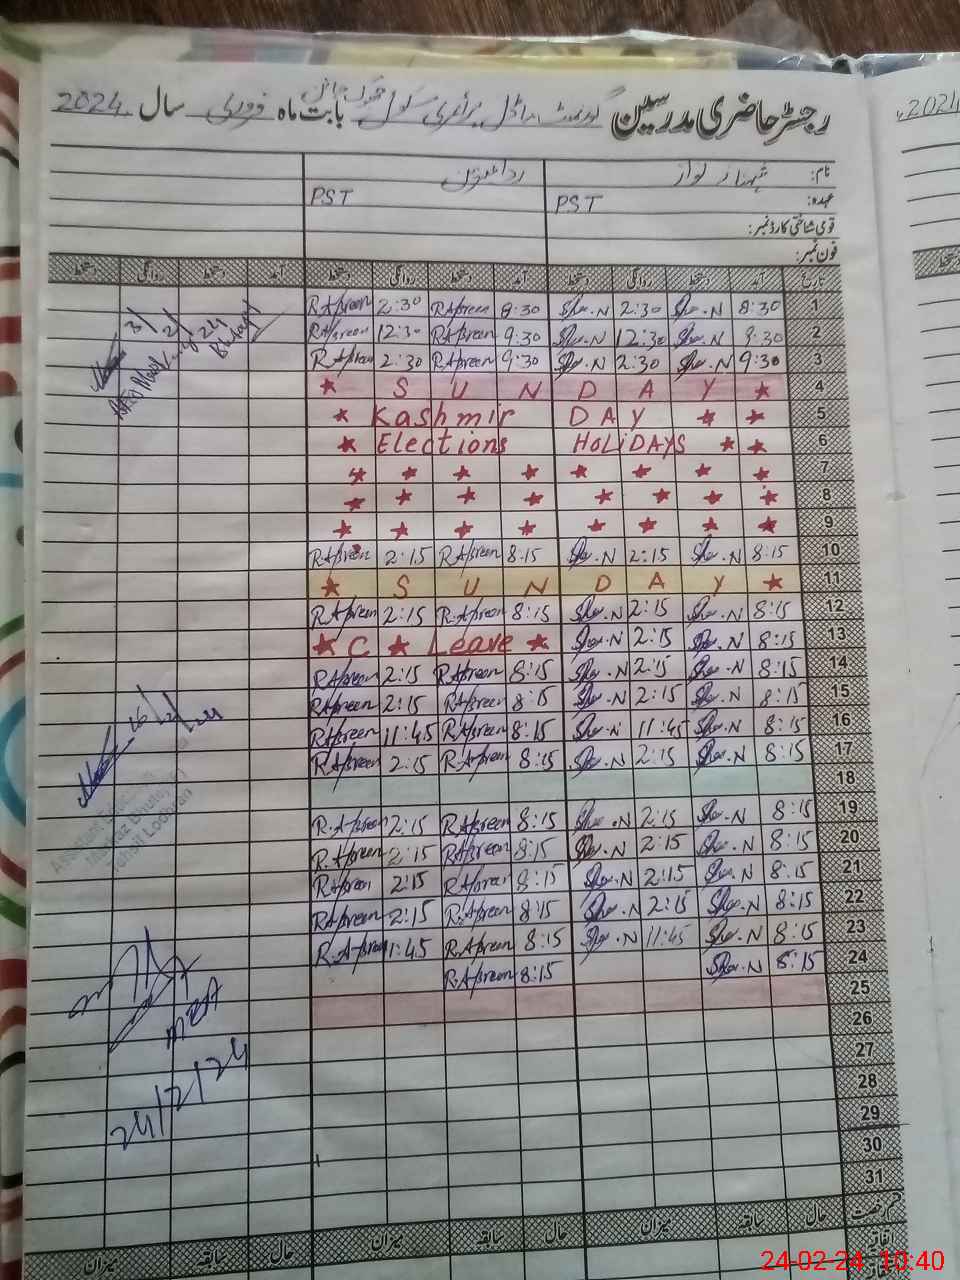 رجسٹر حاضری مدرسین گورنمنٹ ماڈل پرائمری سکول بابت ماہ فروری سال 2024
2024
نام: شہناز نواز
عہدہ: PST PST
قومی شناختی کارڈ نمبر:
فون نمبر:
تاریخ آمد دستخط روانگی دستخط آمد دستخط روانگی دستخط آمد دستخط روانگی دستخط
R.Afreen 2:30 R.Afreen 8:30 Sha.N 2:30 Sha.N 8:30 1
R.Afreen 12:30 R.Afreen 9:30 Sha.N 12:30 Sha.N 9:30 2
R.Afreen 2:30 R.Afreen 9:30 Sha.N 2:30 Sha.N 9:30 3
★ S U N D A Y ★ 4
★ Kashmir DAY ★ ★ 5
★ Elections HOLiDAYS ★ ★ 6
★ ★ ★ ★ ★ ★ ★ ★ 7
★ ★ ★ ★ ★ ★ ★ ★ 8
★ ★ ★ ★ ★ ★ ★ ★ 9
R.Afreen 2:15 R.Afreen 8:15 Sha.N 2:15 Sha.N 8:15 10
★ S U N D A Y ★ 11
R.Afreen 2:15 R.Afreen 8:15 Sha.N 2:15 Sha.N 8:15 12
★ C ★ Leave ★ Sha.N 2:15 Sha.N 8:15 13
R.Afreen 2:15 R.Afreen 8:15 Sha.N 2:15 Sha.N 8:15 14
R.Afreen 2:15 R.Afreen 8:15 Sha.N 2:15 Sha.N 8:15 15
R.Afreen 11:45 R.Afreen 8:15 Sha.N 11:45 Sha.N 8:15 16
R.Afreen 2:15 R.Afreen 8:15 Sha.N 2:15 Sha.N 8:15 17
18
R.Afreen 2:15 R.Afreen 8:15 Sha.N 2:15 Sha.N 8:15 19
R.Afreen 2:15 R.Afreen 8:15 Sha.N 2:15 Sha.N 8:15 20
R.Afreen 2:15 R.Afreen 8:15 Sha.N 2:15 Sha.N 8:15 21
R.Afreen 2:15 R.Afreen 8:15 Sha.N 2:15 Sha.N 8:15 22
R.Afreen 11:45 R.Afreen 8:15 Sha.N 11:45 Sha.N 8:15 23
R.Afreen 8:15 Sha.N 8:15 24
25
26
27
28
29
30
31
قسم رخصت حال سابقہ میزان حال سابقہ میزان حال سابقہ میزان
اتفاقیہ
3/2/24
16/2/24
Tehsil Lodhran
MEA
24/2/24
24-02-24 10:40